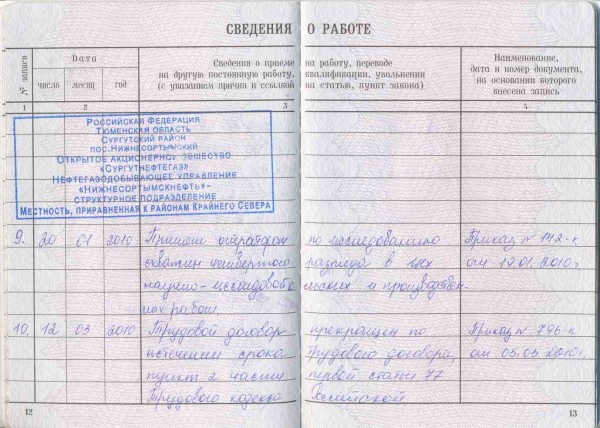 СВЕДЕНИЯ О РАБОТЕ
№ записи
Дата
число месяц год
Сведения о приеме на работу, переводе
на другую постоянную работу, квалификации, увольнении
(с указанием причин и ссылкой на статью, пункт закона)
Наименование,
дата и номер документа,
на основании которого
внесена запись
1 2 3 4
Российская Федерация
Тюменская область
Сургутский район
пос. Нижнесортымский
Открытое акционерное общество
«Сургутнефтегаз»
Нефтегазодобывающее управление
«Нижнесортымскнефть»-
структурное подразделение
Местность, приравненная к районам Крайнего Севера
9. 20 01 2010 Принят оператором по исследованию Приказ № 142-к
скважин четвертого разряда в цех от 19.01.2010г.
научно-исследовательских и производствен-
ных работ.
10. 12 03 2010 Трудовой договор прекращен по Приказ № 796-к
истечении срока трудового договора, от 05.03.2010г.
пункт 2 части первой статьи 77
Трудового кодекса Российской
12 13